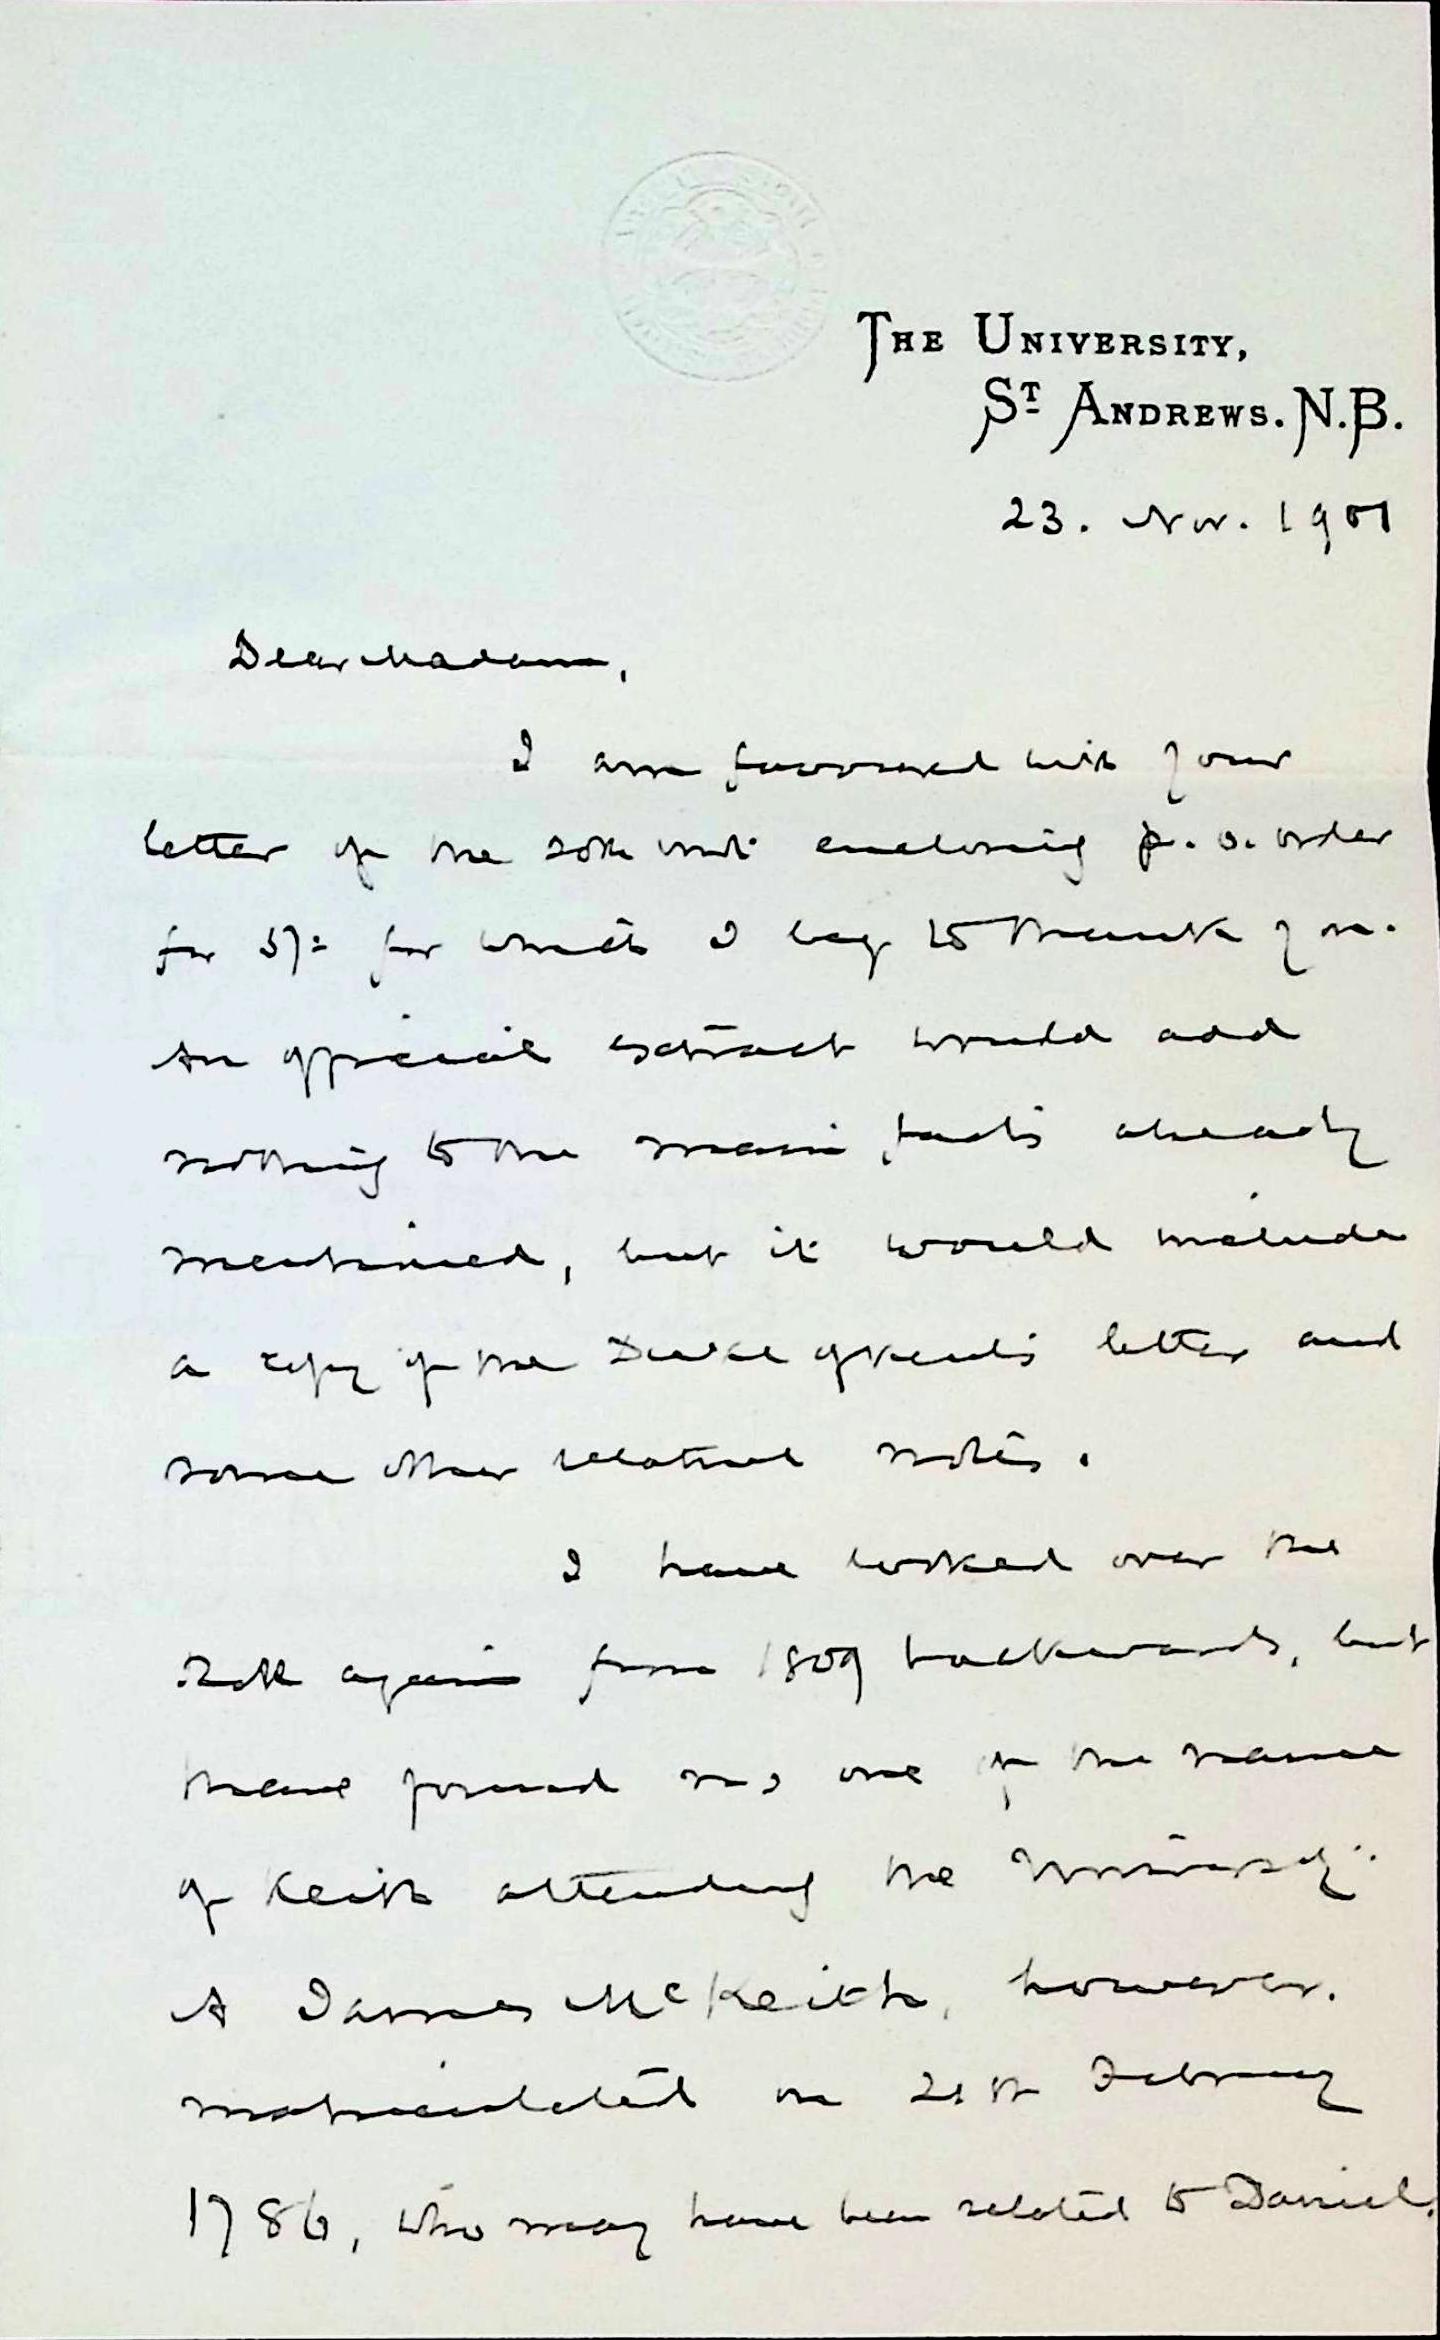 THE UNIVERSITY,
ST ANDREWS. N.B.
23. Nov. 1901
Dear Madam,
I am favoured with your
letter of the 20th inst. enclosing p. o. order
for 5/= for which I beg to thank you.
An official extract would add
nothing to the main facts already
mentioned, but it would include
a copy of the Duke of Kent's letter and
some other relative notes.
I have looked over the
Roll again from 1809 backwards, but
have found no one of the name
of Keith attending the University.
A James McKeith, however,
matriculated on 21st February
1786, who may have been related to Daniel.